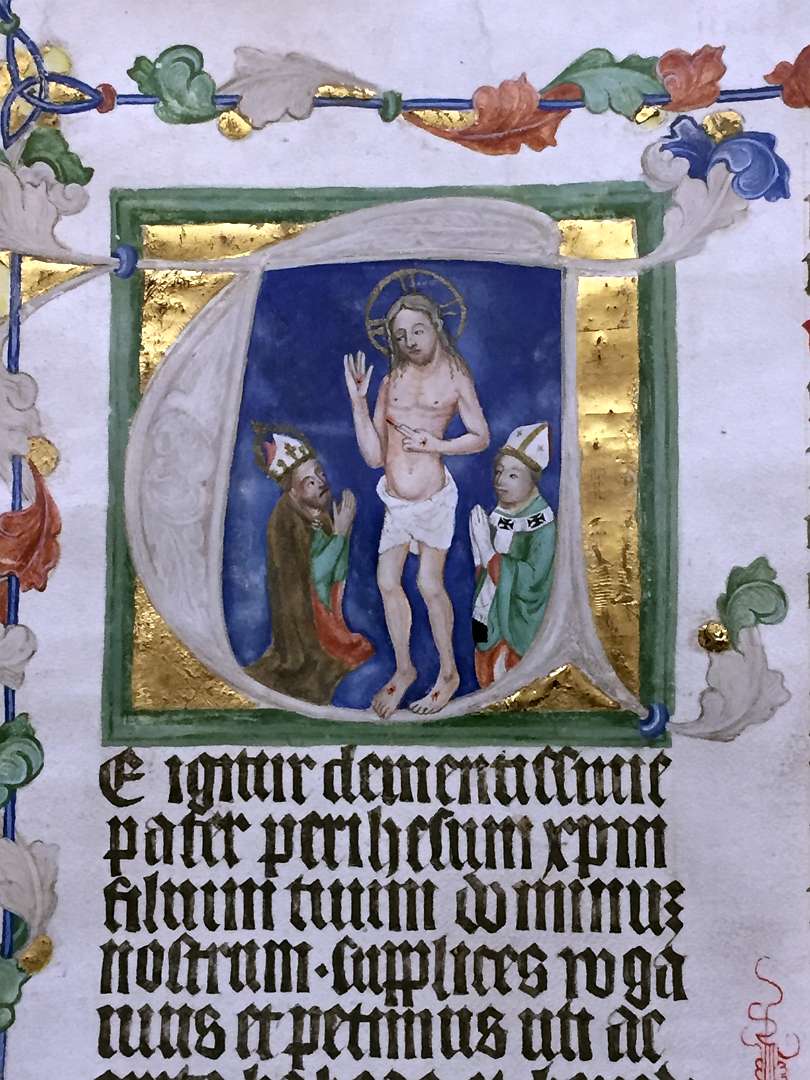 TE igitur clementissime
pater per ihesum xpm
filium tuum dominuz
nostrum·supplices roga
mus et petimus uti ac